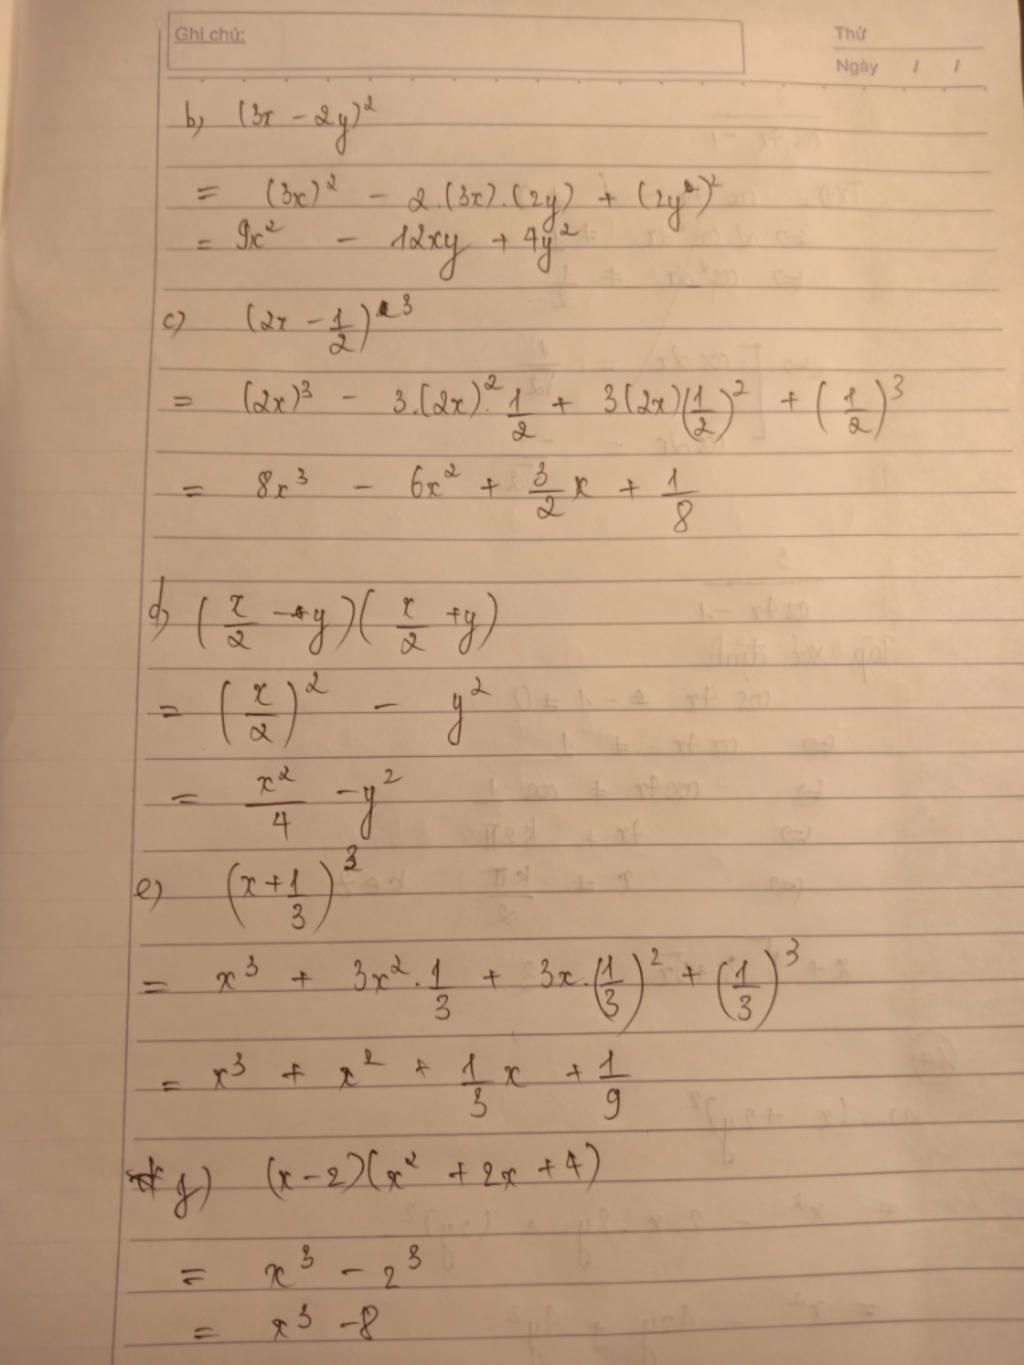 Ghi chú:
Thứ
Ngày / /
b) (3x - 2y)²
= (3x)² - 2.(3x).(2y) + (2y)²
= 9x² - 12xy + 4y²
c) (2x - 1/2)³
= (2x)³ - 3.(2x)².1/2 + 3(2x)(1/2)² + (1/2)³
= 8x³ - 6x² + 3/2x + 1/8
d) (x/2 - y)(x/2 + y)
= (x/2)² - y²
= x²/4 - y²
e) (x + 1/3)³
= x³ + 3x².1/3 + 3x.(1/3)² + (1/3)³
= x³ + x² + 1/3x + 1/9
g) (x - 2)(x² + 2x + 4)
= x³ - 2³
= x³ - 8